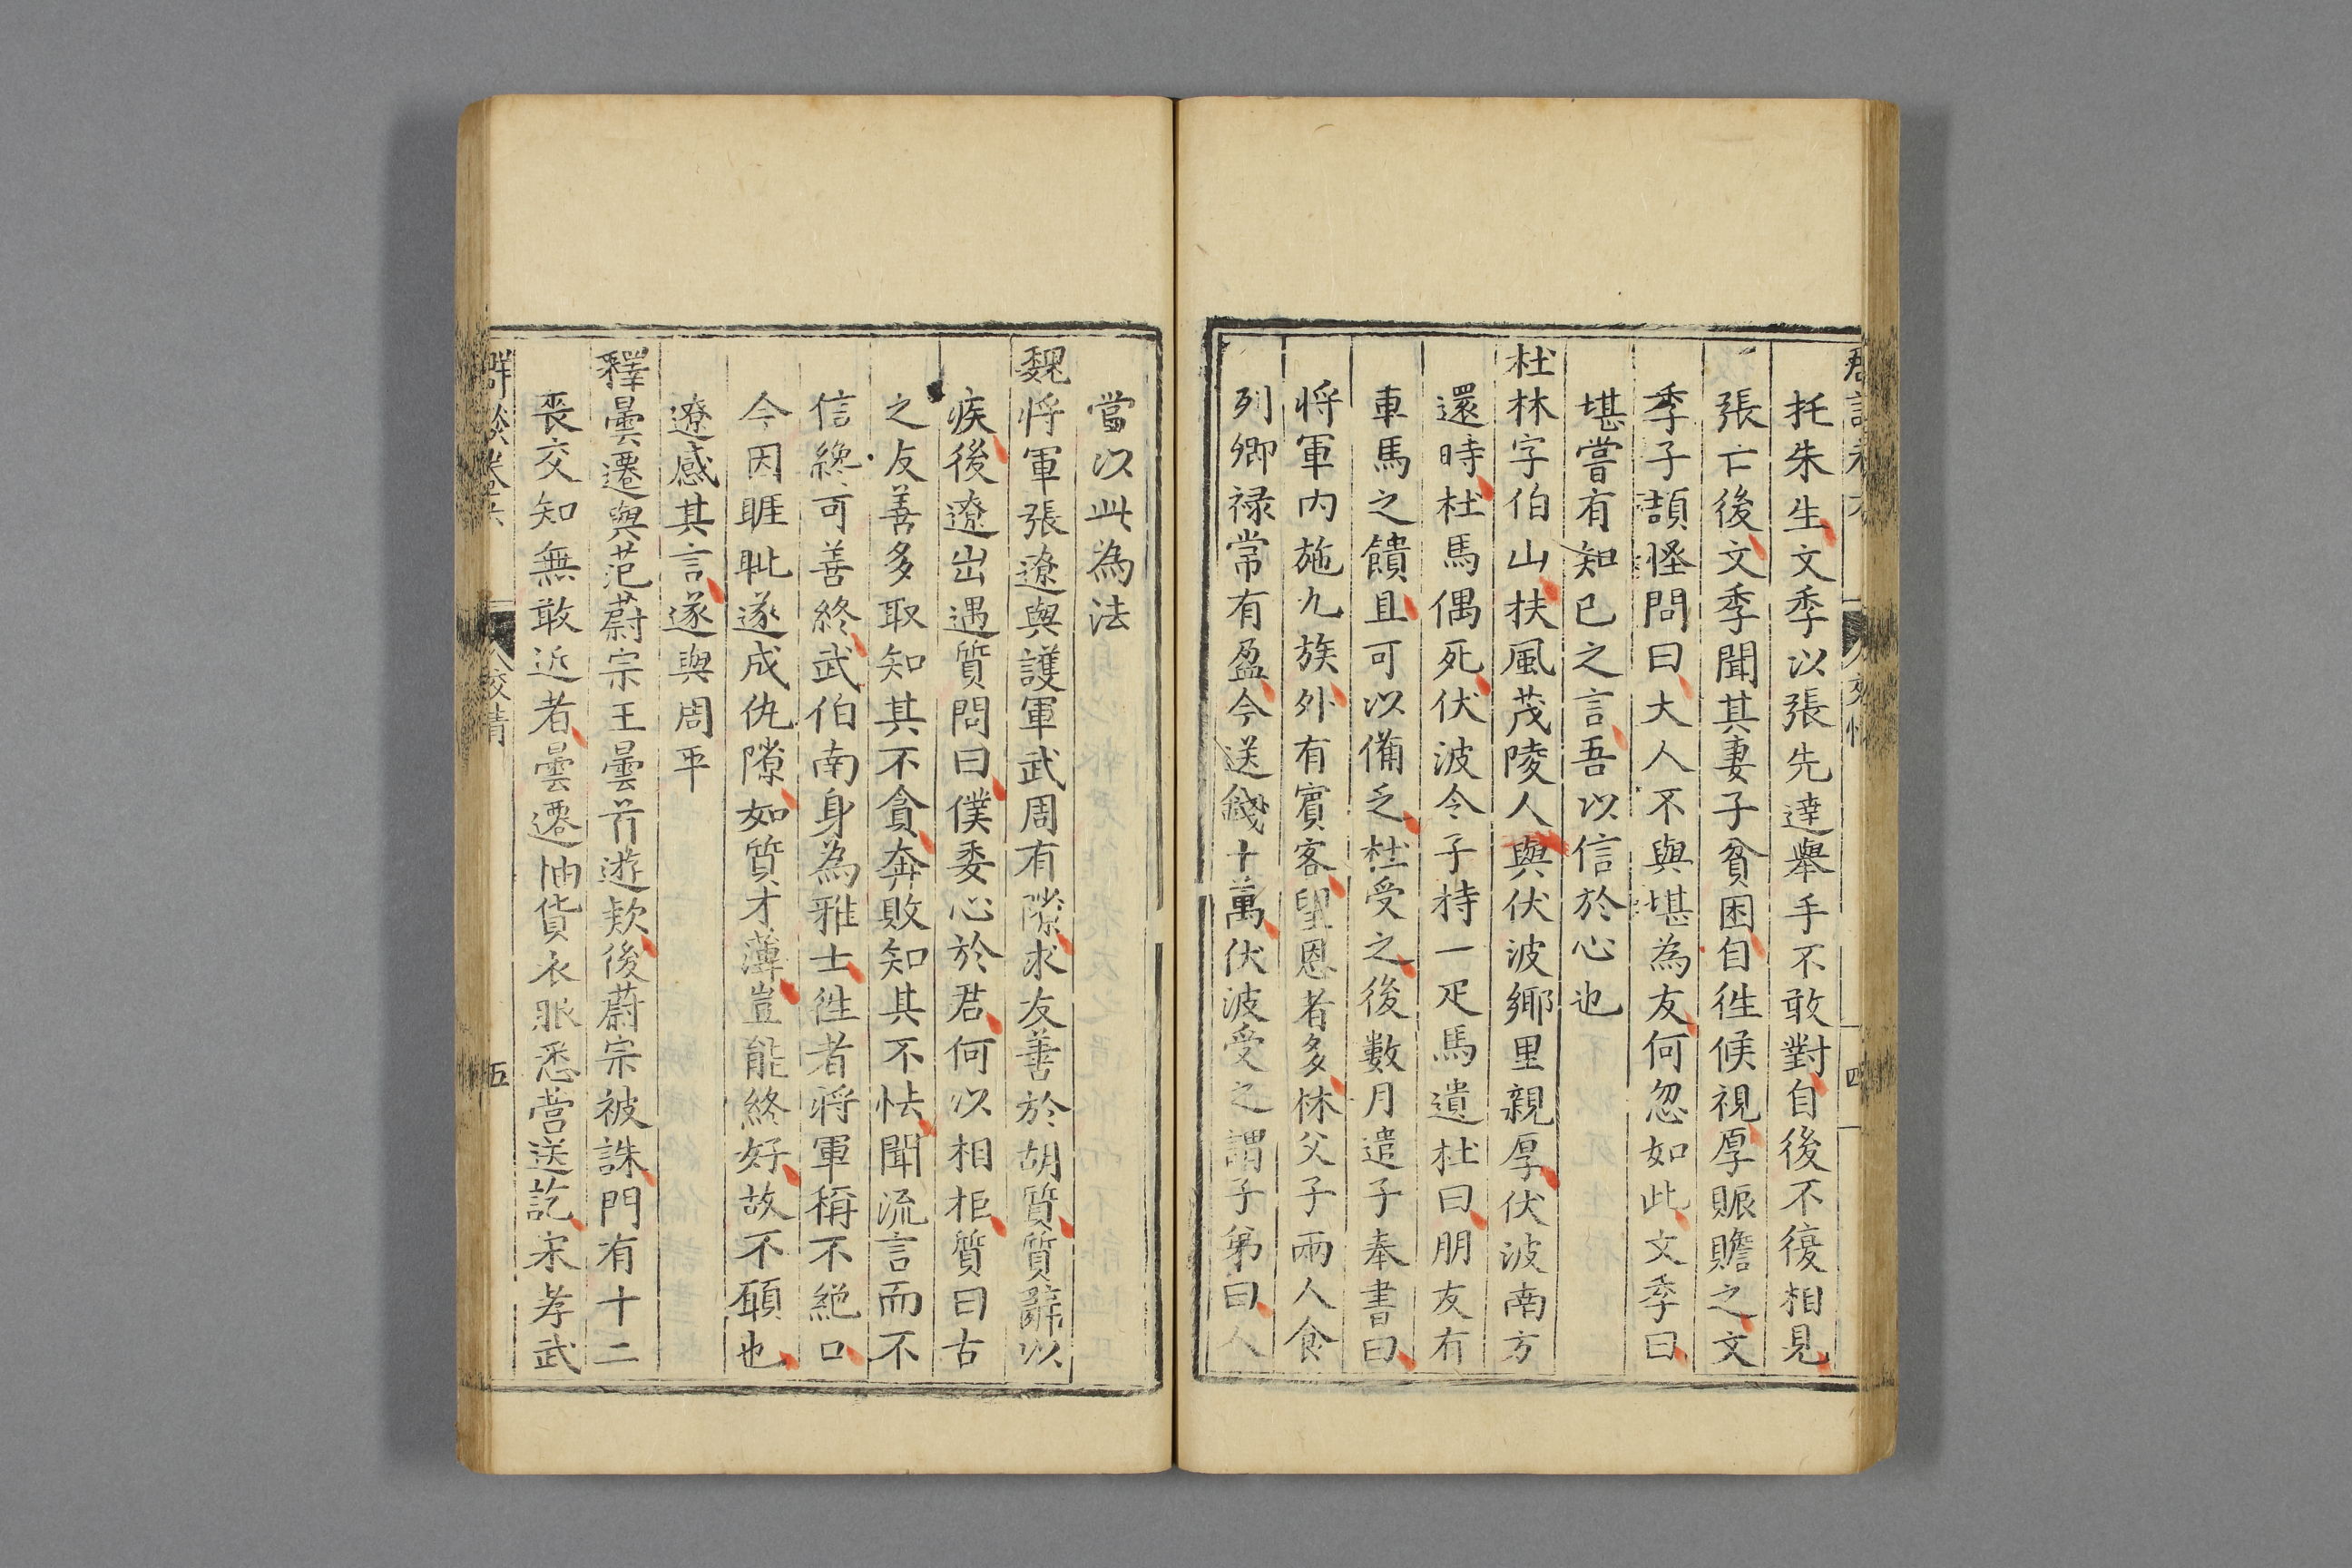 托朱生文季以張先達舉手不敢對自後不復相見
張亡後文季聞其妻子貧困自徃候視厚賑贍之文
季子頡怪問曰大人不與堪為友何忽如此文季曰
堪嘗有知己之言吾以信於心也
杜林字伯山扶風茂陵人與伏波鄉里親厚伏波南方
還時杜馬偶死伏波令子持一疋馬遺杜曰朋友有
車馬之饋且可以備乏杜受之後數月遣子奉書曰
將軍內施九族外有賓客望恩者多林父子兩人食
列卿祿常有盈今送錢十萬伏波受之謂子弟曰人
當以此為法
魏將軍張遼與護軍武周有隙求友善於胡質質辭以
疾後遼出遇質問曰僕委心於君何以相柜質曰古
之友善多取知其不貪奔敗知其不怯聞流言而不
信終可善終武伯南身為雅士徃者將軍稱不絕口
今因睚眦遂成仇隙如質才薄豈能終好故不願也
遼感其言遂與周平
釋曇遷與范蔚宗王曇首遊欵後蔚宗被誅門有十二
喪交知無敢近者曇遷抽貨衣服悉營送訖宋孝武
群談卷六 交情 五